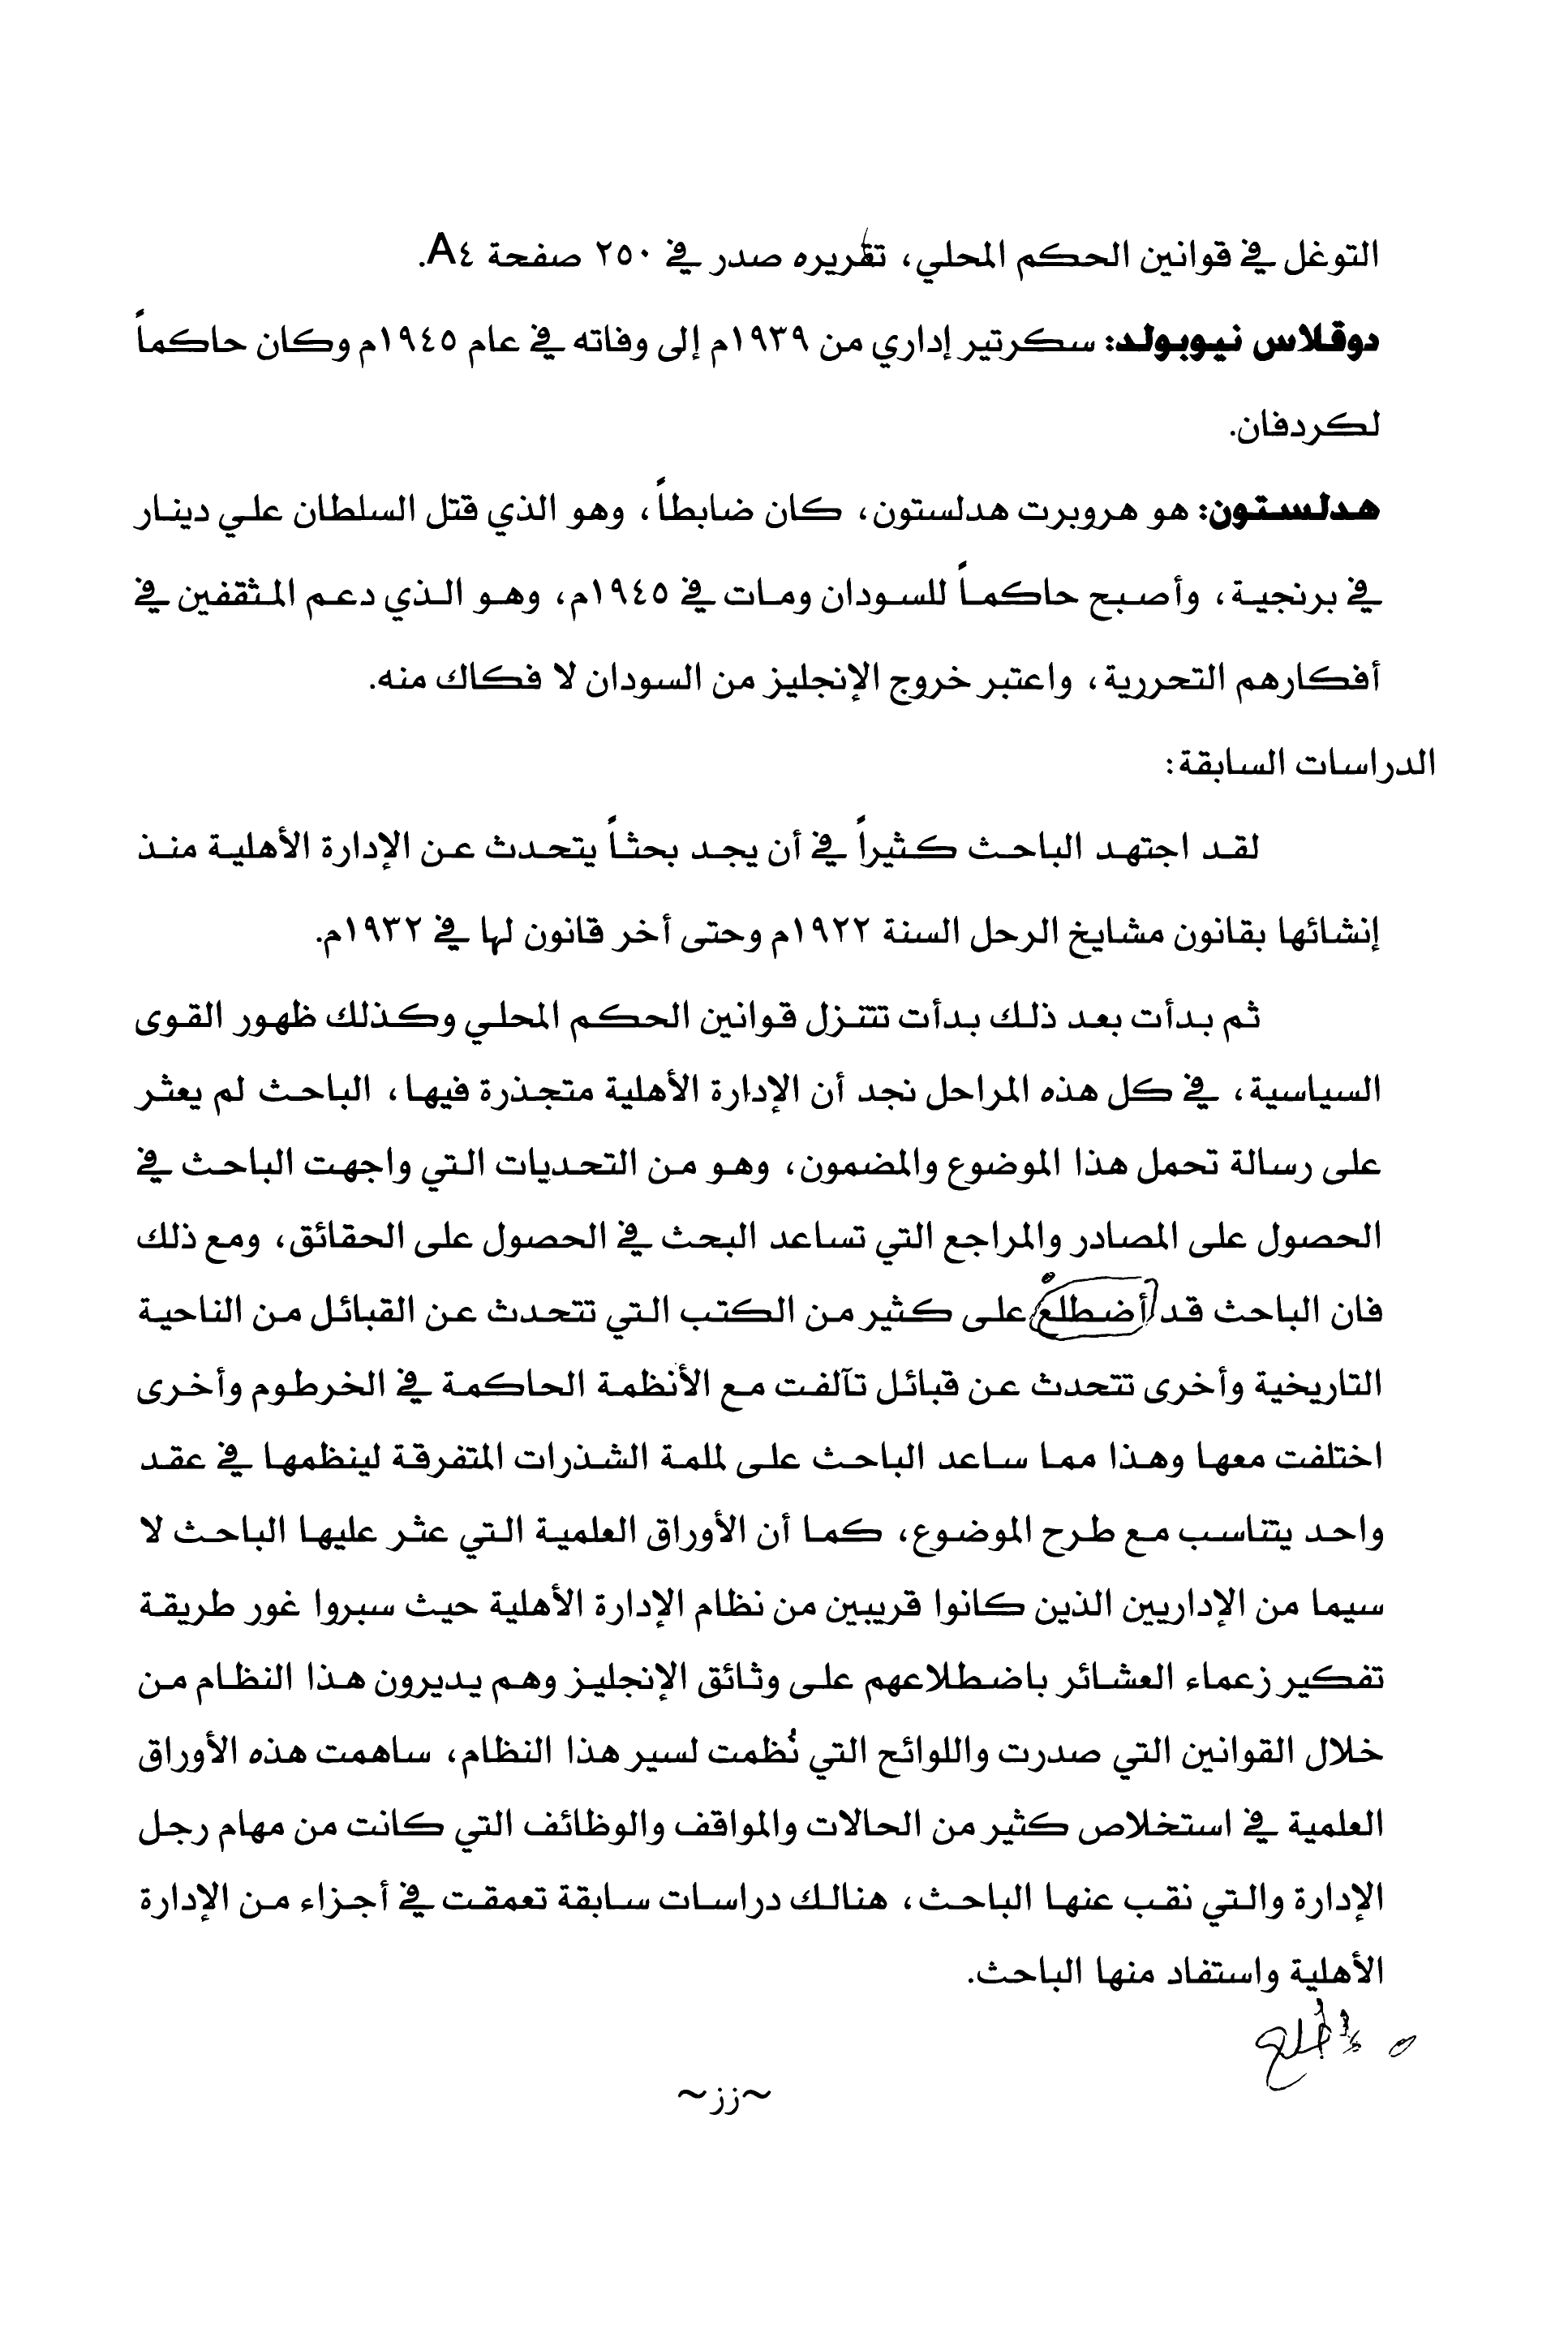 التوغل في قوانين الحكم المحلي، تقريره صدر في ٢٥٠ صفحة A٤.
دوقلاس نيوبولد: سكرتير إداري من ١٩٣٩م إلى وفاته في عام ١٩٤٥م وكان حاكماً
لكردفان.
هدلستون: هو هروبرت هدلستون، كان ضابطاً، وهو الذي قتل السلطان علي دينار
في برنجية، وأصبح حاكماً للسودان ومات في ١٩٤٥م، وهو الذي دعم المثقفين في
أفكارهم التحررية، واعتبر خروج الإنجليز من السودان لا فكاك منه.
الدراسات السابقة:
لقد اجتهد الباحث كثيراً في أن يجد بحثاً يتحدث عن الإدارة الأهلية منذ
إنشائها بقانون مشايخ الرحل السنة ١٩٢٢م وحتى أخر قانون لها في ١٩٣٢م.
ثم بدأت بعد ذلك بدأت تتنزل قوانين الحكم المحلي وكذلك ظهور القوى
السياسية، في كل هذه المراحل نجد أن الإدارة الأهلية متجذرة فيها، الباحث لم يعثر
على رسالة تحمل هذا الموضوع والمضمون، وهو من التحديات التي واجهت الباحث في
الحصول على المصادر والمراجع التي تساعد البحث في الحصول على الحقائق، ومع ذلك
فان الباحث قد أضطلع على كثير من الكتب التي تتحدث عن القبائل من الناحية
التاريخية وأخرى تتحدث عن قبائل تآلفت مع الأنظمة الحاكمة في الخرطوم وأخرى
اختلفت معها وهذا مما ساعد الباحث على لملمة الشذرات المتفرقة لينظمها في عقد
واحد يتناسب مع طرح الموضوع، كما أن الأوراق العلمية التي عثر عليها الباحث لا
سيما من الإداريين الذين كانوا قريبين من نظام الإدارة الأهلية حيث سبروا غور طريقة
تفكير زعماء العشائر باضطلاعهم على وثائق الإنجليز وهم يديرون هذا النظام من
خلال القوانين التي صدرت واللوائح التي نُظمت لسير هذا النظام، ساهمت هذه الأوراق
العلمية في استخلاص كثير من الحالات والمواقف والوظائف التي كانت من مهام رجل
الإدارة والتي نقب عنها الباحث، هنالك دراسات سابقة تعمقت في أجزاء من الإدارة
الأهلية واستفاد منها الباحث.
~زز~